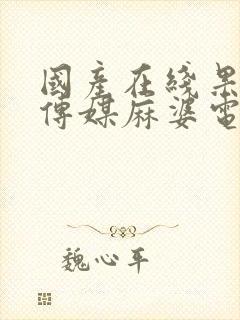 國產在綫果
傳媒麻婆電
魏心平